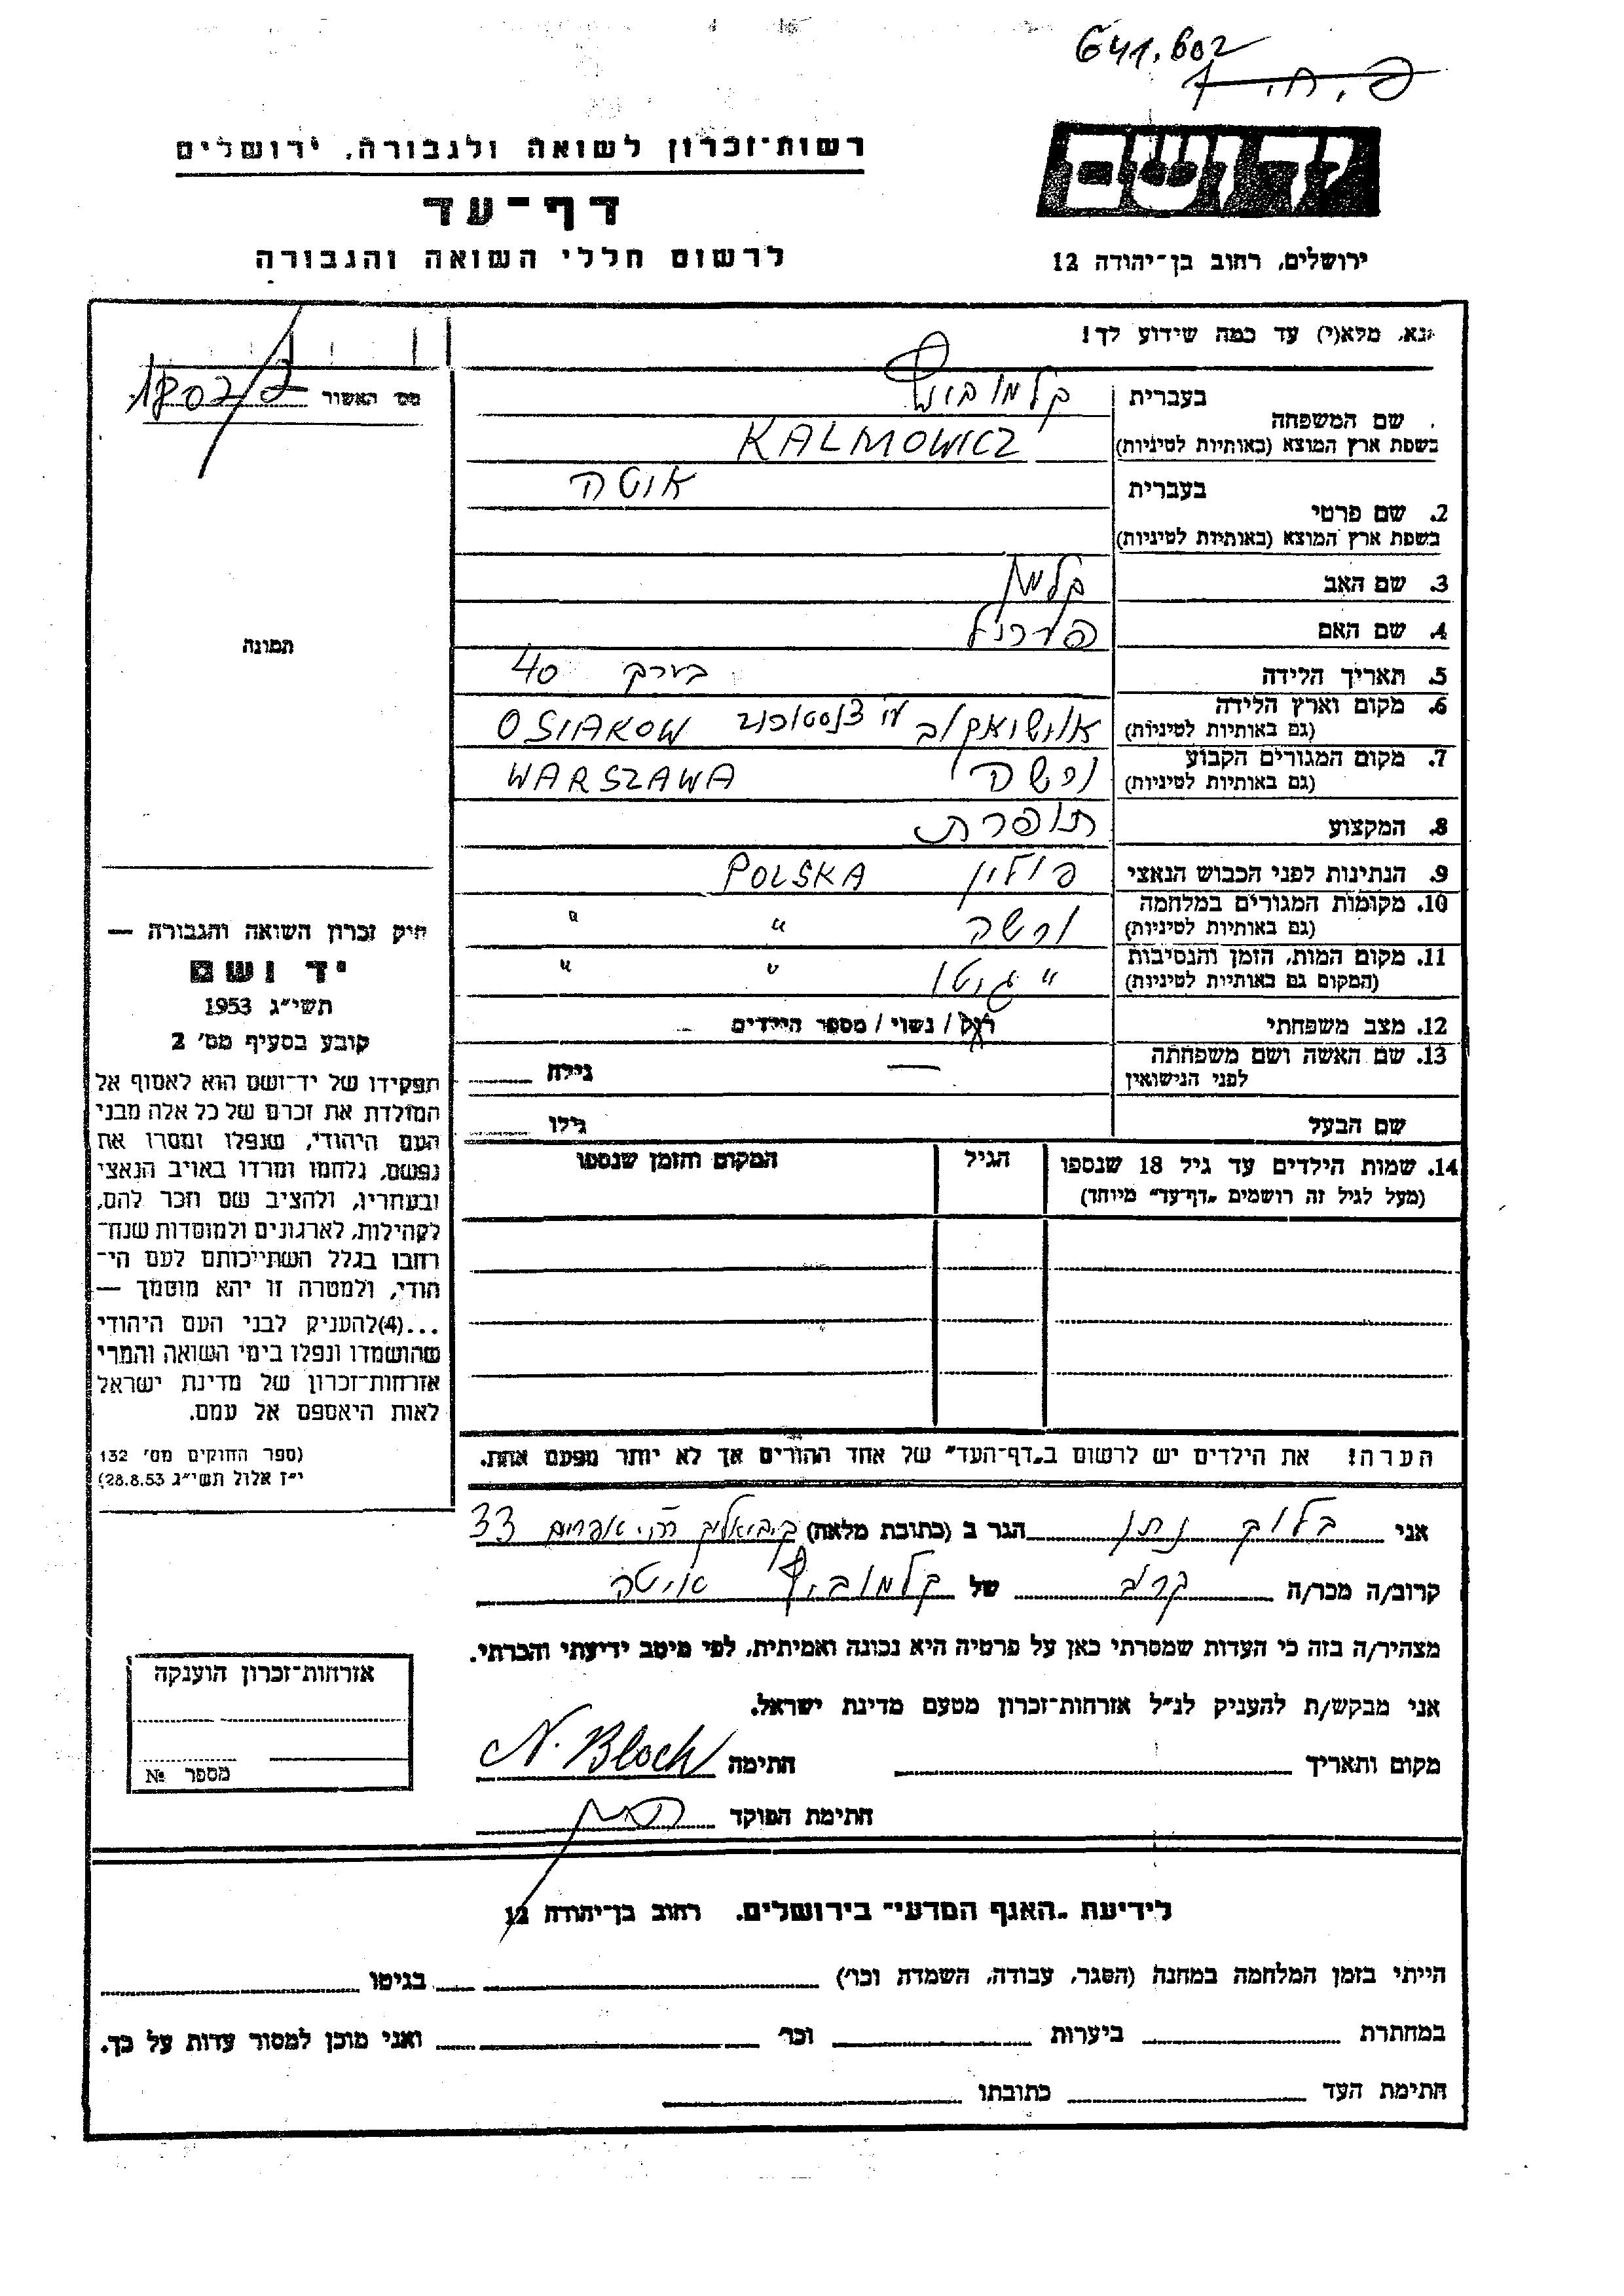 641.602
רשות־זכרון לשואה ולגבורה, ירושלים
דף־עד
לרשום חללי השואה והגבורה
יד ושם
ירושלים, רחוב בן־יהודה 12
נא, מלא(י) עד כמה שידוע לך!
מס' האשור 1802/7
בעברית
שם המשפחה קלמוביץ
בשפת ארץ המוצא (באותיות לטיניות) KALMOWICZ
בעברית אוטה
2. שם פרטי
בשפת ארץ המוצא (באותיות לטיניות)
3. שם האב קלמן
4. שם האם
5. תאריך הלידה בערך 40
6. מקום וארץ הלידה
(גם באותיות לטיניות) OSIAKOW
7. מקום המגורים הקבוע ורשה WARSZAWA
(גם באותיות לטיניות)
8. המקצוע תופרת
9. הנתינות לפני הכבוש הנאצי פולין POLSKA
10. מקומות המגורים במלחמה ורשה " "
(גם באותיות לטיניות)
11. מקום המות, הזמן והנסיבות " גיטו " "
(המקום גם באותיות לטיניות)
12. מצב משפחתי רוק / נשוי / מספר הילדים
13. שם האשה ושם משפחתה — גילה
לפני הנישואין
שם הבעל גילו
14. שמות הילדים עד גיל 18 שנספו הגיל המקום והזמן שנספו
(מעל לגיל זה רושמים „דף־עד" מיוחד)
הערה! את הילדים יש לרשום ב„דף־העד" של אחד ההורים אך לא יותר מפעם אחת.
תמונה
חיק זכרון השואה והגבורה —
יד ושם
תשי״ג 1953
קובע בסעיף מס' 2
תפקידו של יד־ושם הוא לאסוף אל
המולדת את זכרם של כל אלה מבני
העם היהודי, שנפלו ומסרו את
נפשם, נלחמו ומרדו באויב הנאצי
ובעוזריו, ולהציב שם וזכר להם,
לקהילות, לארגונים ולמוסדות שנח־
רחבו בגלל השתייכותם לעם הי־
הודי, ולמטרה זו יהא מוסמך —
...(4)להעניק לבני העם היהודי
שהושמדו ונפלו בימי השואה והמרי
אזרחות־זכרון של מדינת ישראל
לאות היאספם אל עמם.
(ספר החוקים מס' 132
י״ז אלול תשי״ג 28.8.53)
אני בלוך נתן הגר ב (כתובת מלאה) 33
קרוב/ה מכר/ה קרוב של קלמוביץ אוטה
מצהיר/ה בזה כי העדות שמסרתי כאן על פרטיה היא נכונה ואמיתית, לפי מיטב ידיעתי והכרתי.
אני מבקש/ת להעניק לנ״ל אזרחות־זכרון מטעם מדינת ישראל.
מקום ותאריך חתימה N. Bloch
חתימת הפוקד
אזרחות־זכרון הוענקה
מספר №
לידיעת „האגף המדעי" בירושלים. רחוב בן־יהודה 12
הייתי בזמן המלחמה במחנה (הסגר, עבודה, השמדה וכו') בגיטו
במחתרת ביערות וכו' ואני מוכן למסור עדות על כך.
חתימת העד כתובתו